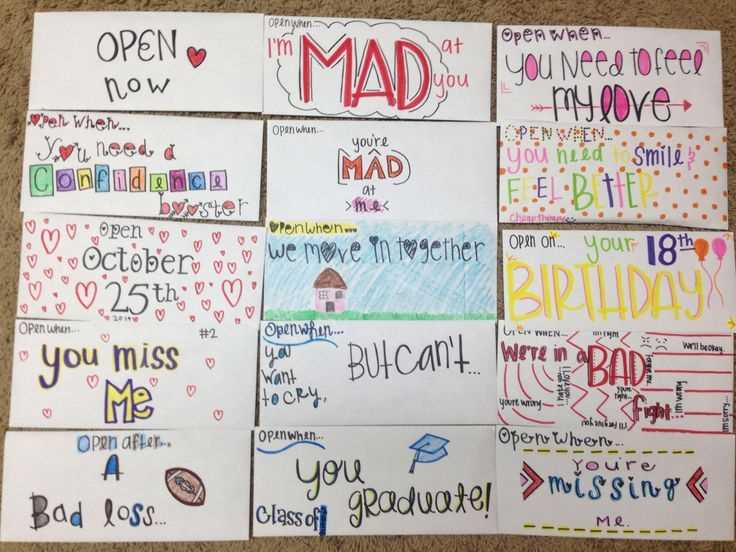 OPEN
now
Open when...
I'm MAD at
you
Open when...
you need to feel
my love
Open when...
you need a
Confidence
booster
Open when...
you're
MAD
at
me
OPEN WHEN...
you need to smile &
FEEL BETTER
Open
October
25th
2014
Open when...
we move in together
Open on... your 18th
BIRTHDAY
Open when... #2
you miss
Me
Open when...
you
want
to cry,
But can't...
OPEN WHEN...
I'm right
We'll be okay.
We're in a
BAD
Fight...
you're wrong
I hate you...
I love you...
you're
right...
I'm wrong
I'm sorry...
Open after...
A
Bad loss...
Open when...
you
graduate!
Class of
Open when...
You're
missing
me.